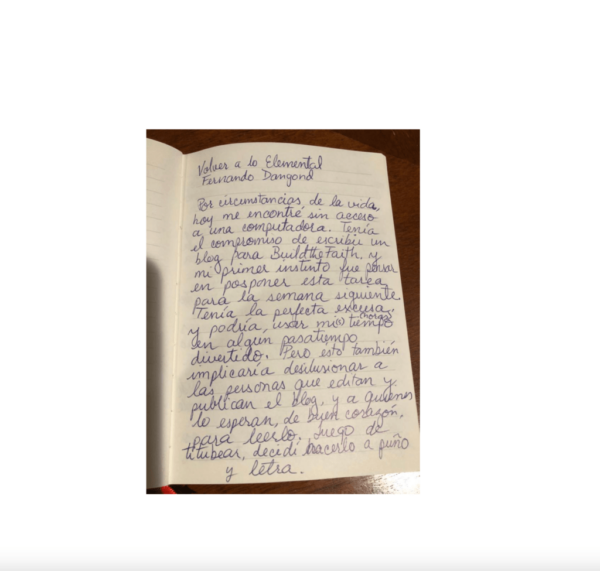 Volver a lo Elemental
Fernando Dangond
Por circunstancias de la vida,
hoy me encontré sin acceso
a una computadora. Tenía
el compromiso de escribir un
blog para BuildtheFaith, y
mi primer instinto fue pensar
en posponer esta tarea
para la semana siguiente.
Tenía la perfecta excusa,
y podría, usar mi(s) tiempo (horas)
en algún pasatiempo
divertido. Pero esto también
implicaría desilusionar a
las personas que editan y
publican el blog, y a quienes
lo esperan, de buen corazón,
para leerlo. Luego de
titubear, decidí hacerlo a puño
y letra.